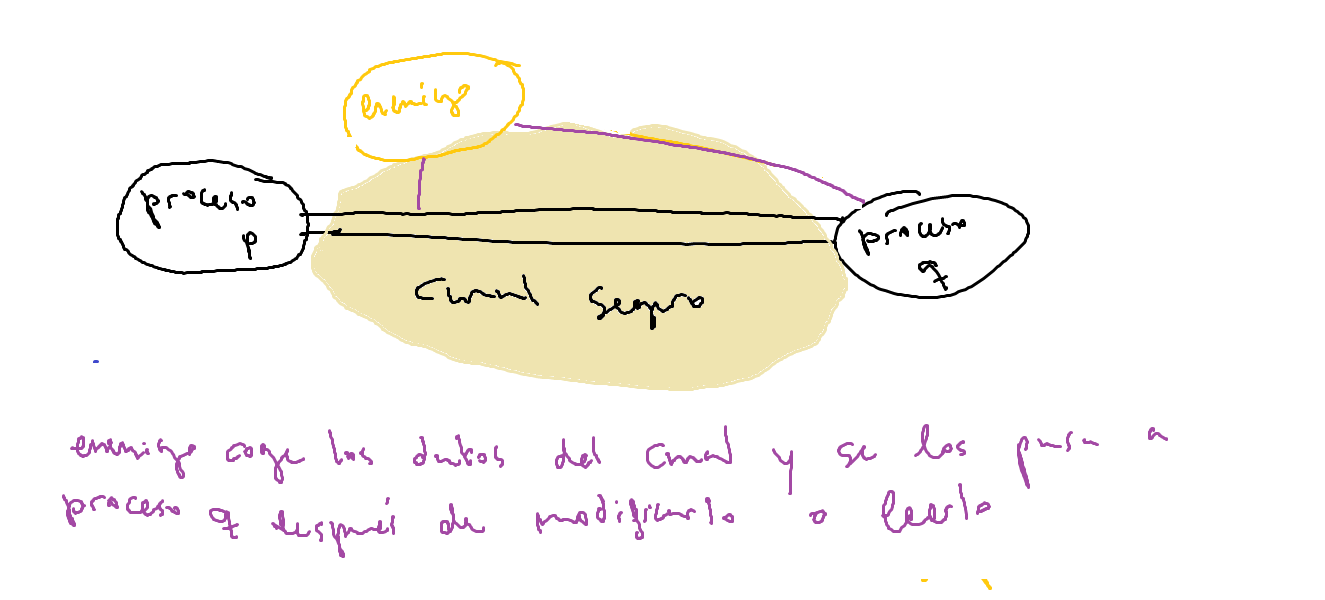 enemigo
proceso
p
proceso
q
Canal Seguro
enemigo coge los datos del canal y se los pasa a
proceso q después de modificarlo o leerlo